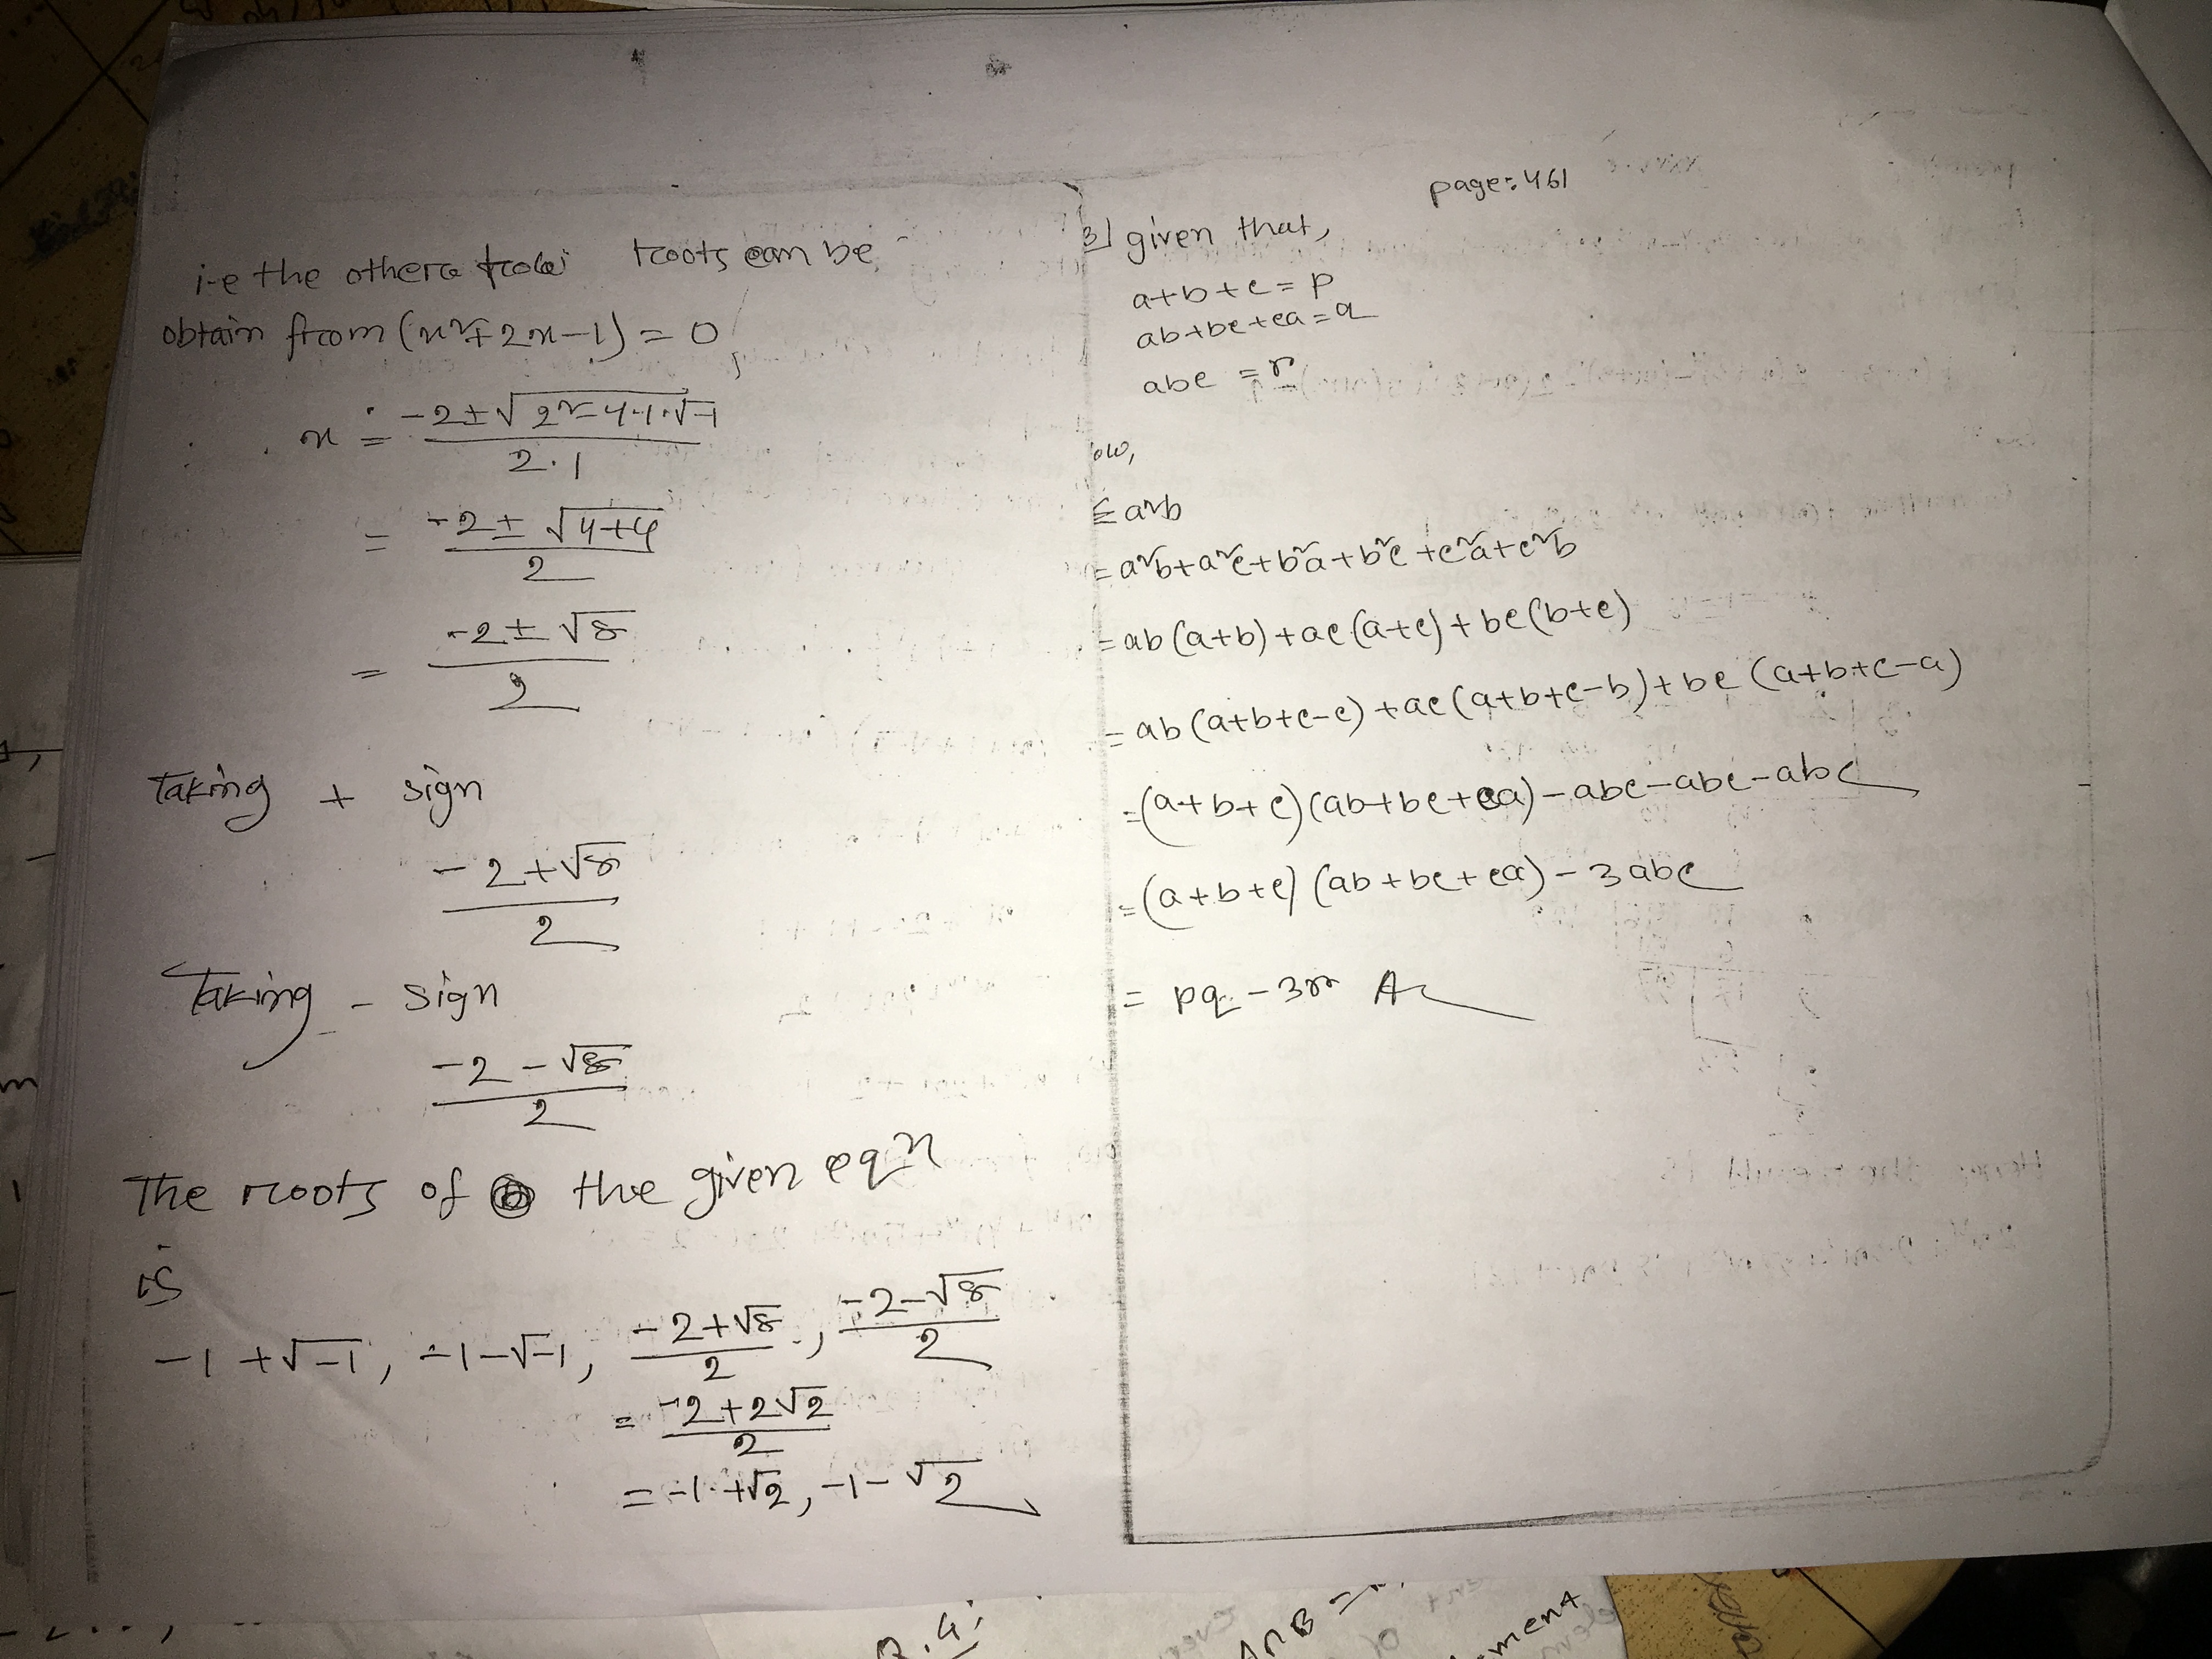 i-e the other roots can be
obtain from (x²+2x-1) = 0,
x = (-2±√(2²-4·1·√-1))/(2·1)
= (-2±√(4+4))/2
= (-2±√8)/2
Taking + sign
(-2+√8)/2
Taking - sign
(-2-√8)/2
The roots of the given eqn
is
-1+√-1, -1-√-1, (-2+√8)/2, (-2-√8)/2
= (-2+2√2)/2
= -1+√2, -1-√2
page: 461
3] given that,
a+b+c = p
ab+bc+ca = q
abc = r
ow,
Σa²b
= a²b+a²c+b²a+b²c+c²a+c²b
= ab(a+b)+ac(a+c)+bc(b+c)
= ab(a+b+c-c)+ac(a+b+c-b)+bc(a+b+c-a)
= (a+b+c)(ab+bc+ca)-abc-abc-abc
= (a+b+c)(ab+bc+ca)-3abc
= pq-3r
A∩B =